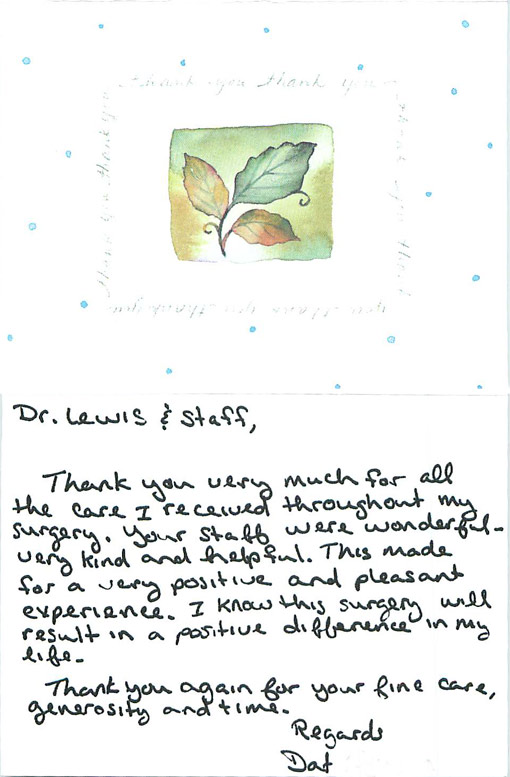 thank you thank you
Dr. Lewis & Staff,
Thank you very much for all
the care I received throughout my
surgery. Your staff were wonderful-
very kind and helpful. This made
for a very positive and pleasant
experience. I know this surgery will
result in a positive difference in my
life.
Thank you again for your fine care,
generosity and time.
Regards
Dat